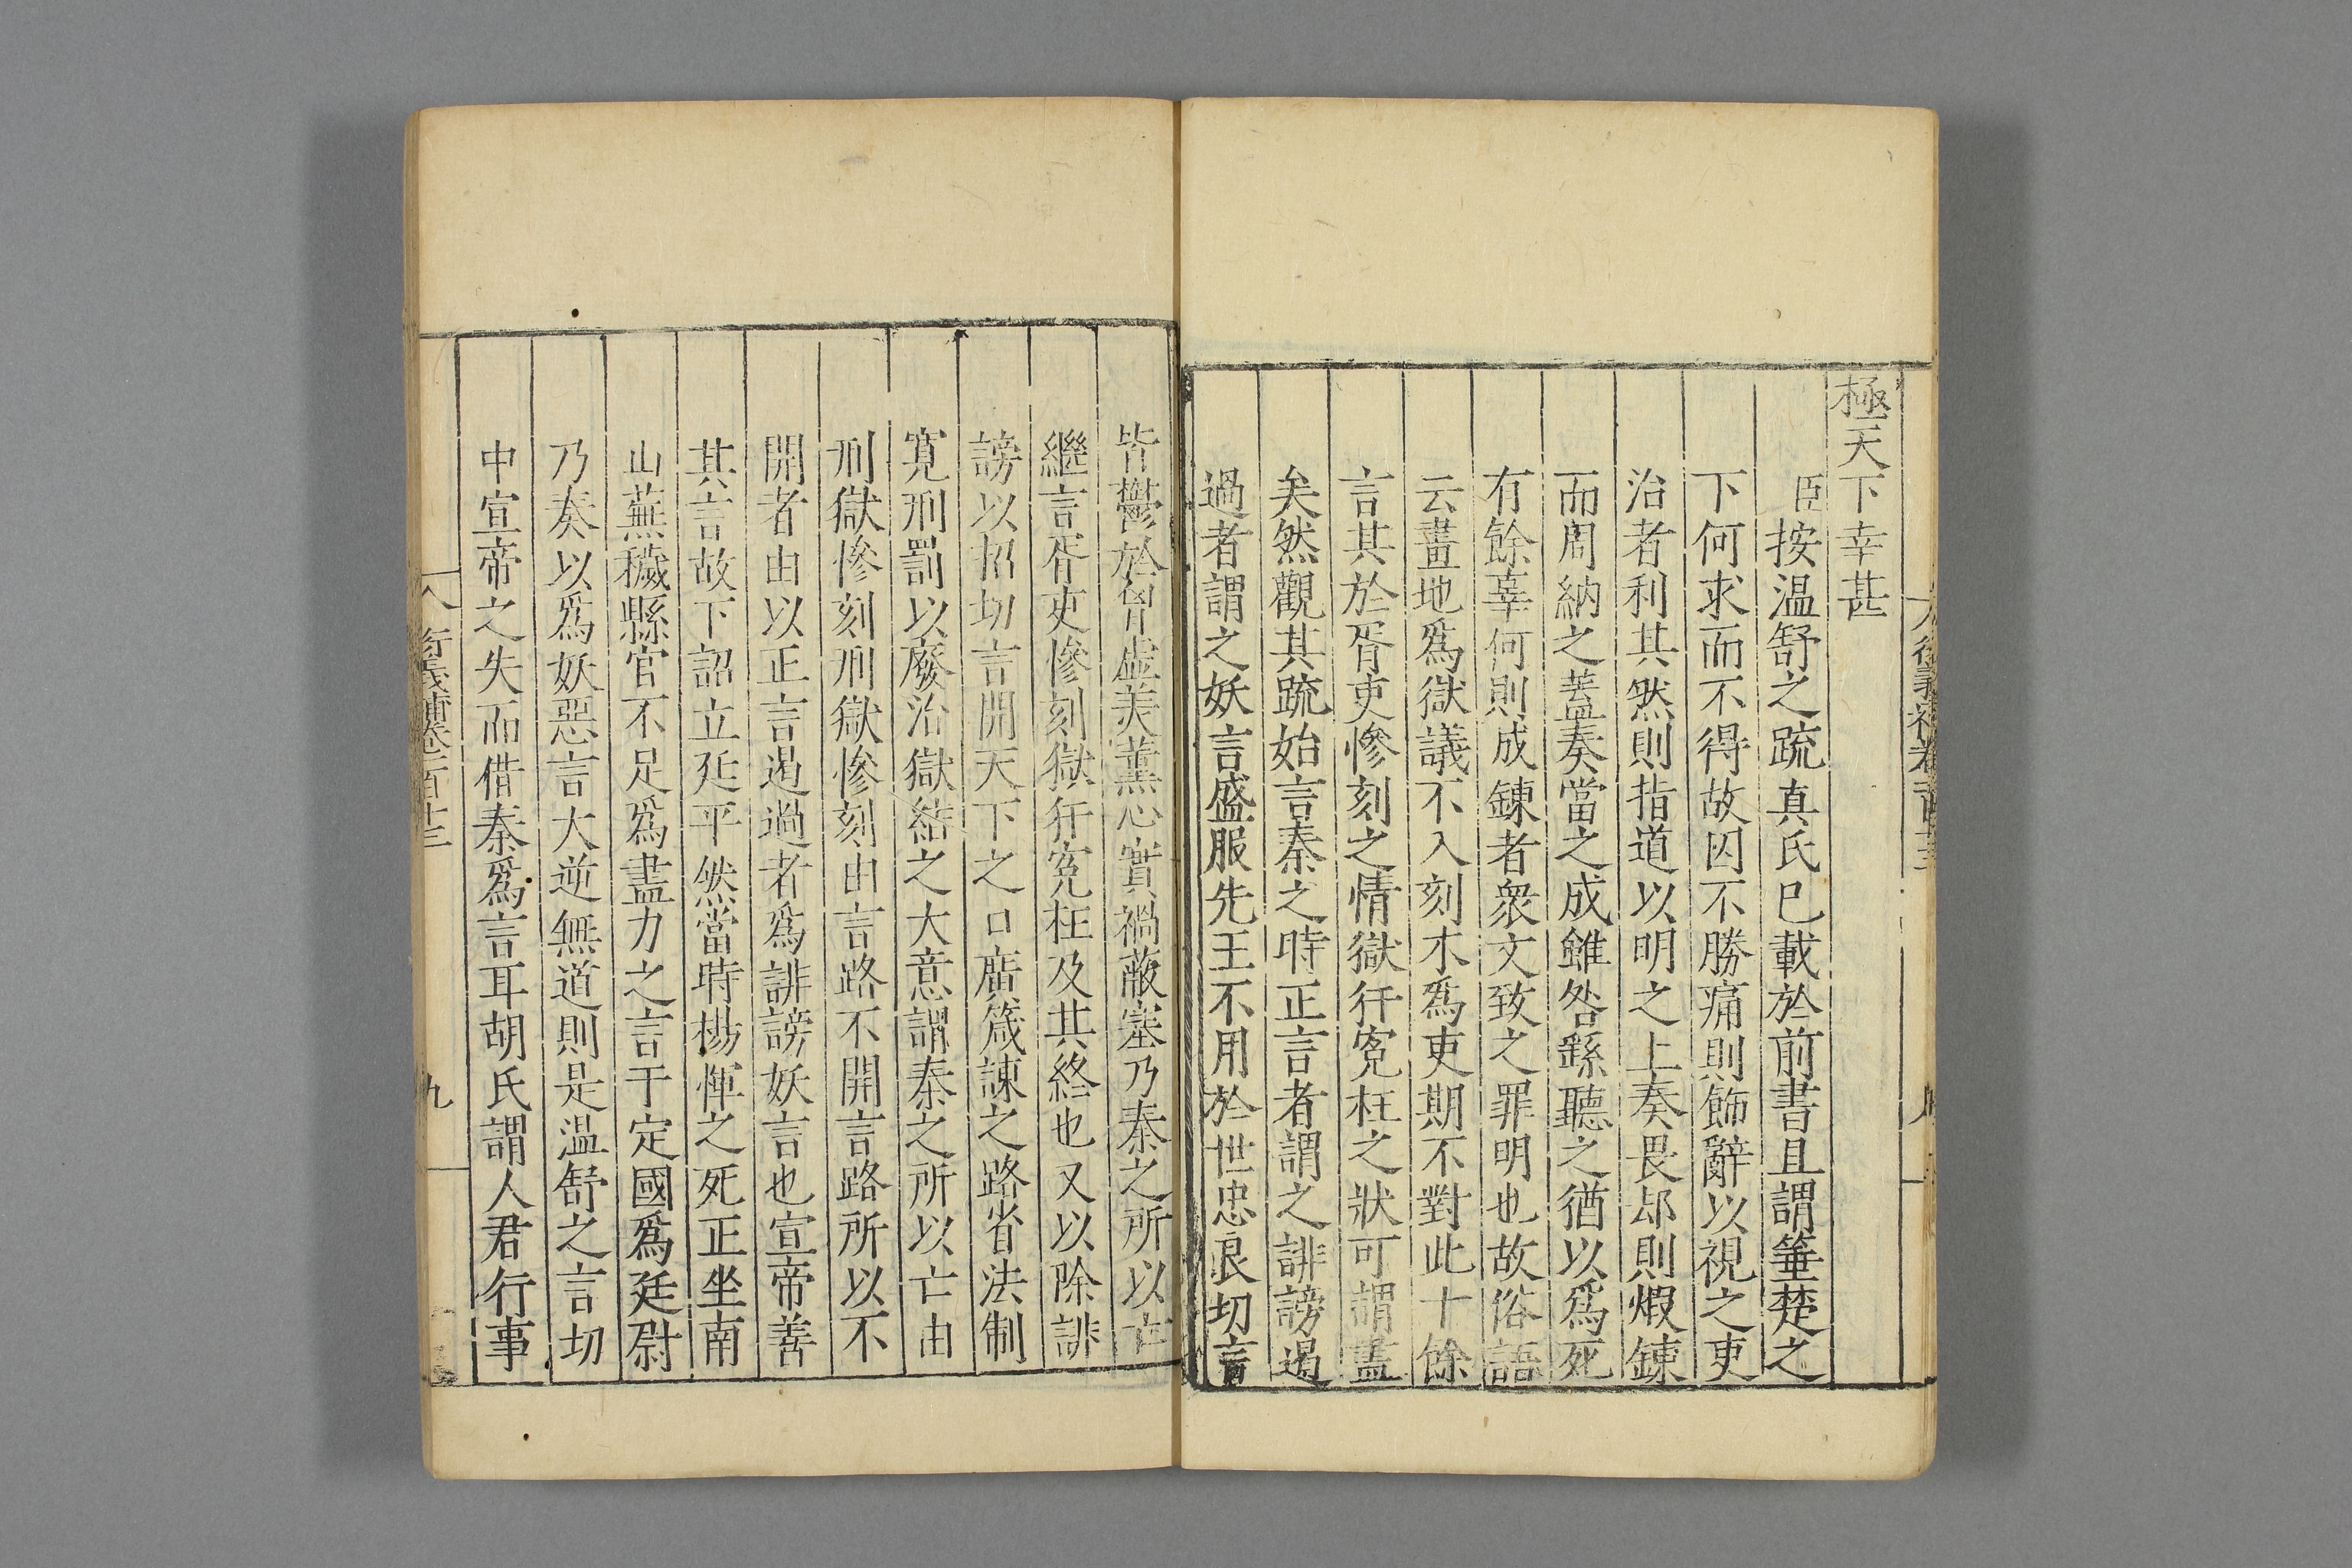 極天下幸甚
臣按温舒之疏真氏已載於前書且謂箠楚之
下何求而不得故囚不勝痛則飾辭以視之吏
治者利其然則指道以明之上奏畏却則煆鍊
而周納之蓋奏當之成雖咎繇聽之猶以爲死
有餘辜何則成鍊者衆文致之罪明也故俗語
云畫地爲獄議不入刻木爲吏期不對此十餘
言其於胥吏慘刻之情獄犴寃枉之狀可謂盡
矣然觀其疏始言秦之時正言者謂之誹謗遏
過者謂之妖言盛服先王不用於世忠良切言
皆鬱於胷虛美薰心實禍蔽塞乃秦之所以亡
繼言胥吏慘刻獄犴寃枉及其終也又以除誹
謗以招切言開天下之口廣箴諫之路省法制
寛刑罰以廢治獄結之大意謂秦之所以亡由
刑獄慘刻刑獄慘刻由言路不開言路所以不
開者由以正言遏過者爲誹謗妖言也宣帝善
其言故下詔立廷平然當時楊惲之死正坐南
山蕪穢縣官不足爲盡力之言于定國爲廷尉
乃奏以爲妖惡言大逆無道則是温舒之言切
中宣帝之失而借秦爲言耳胡氏謂人君行事
衍義補卷一百十三
九